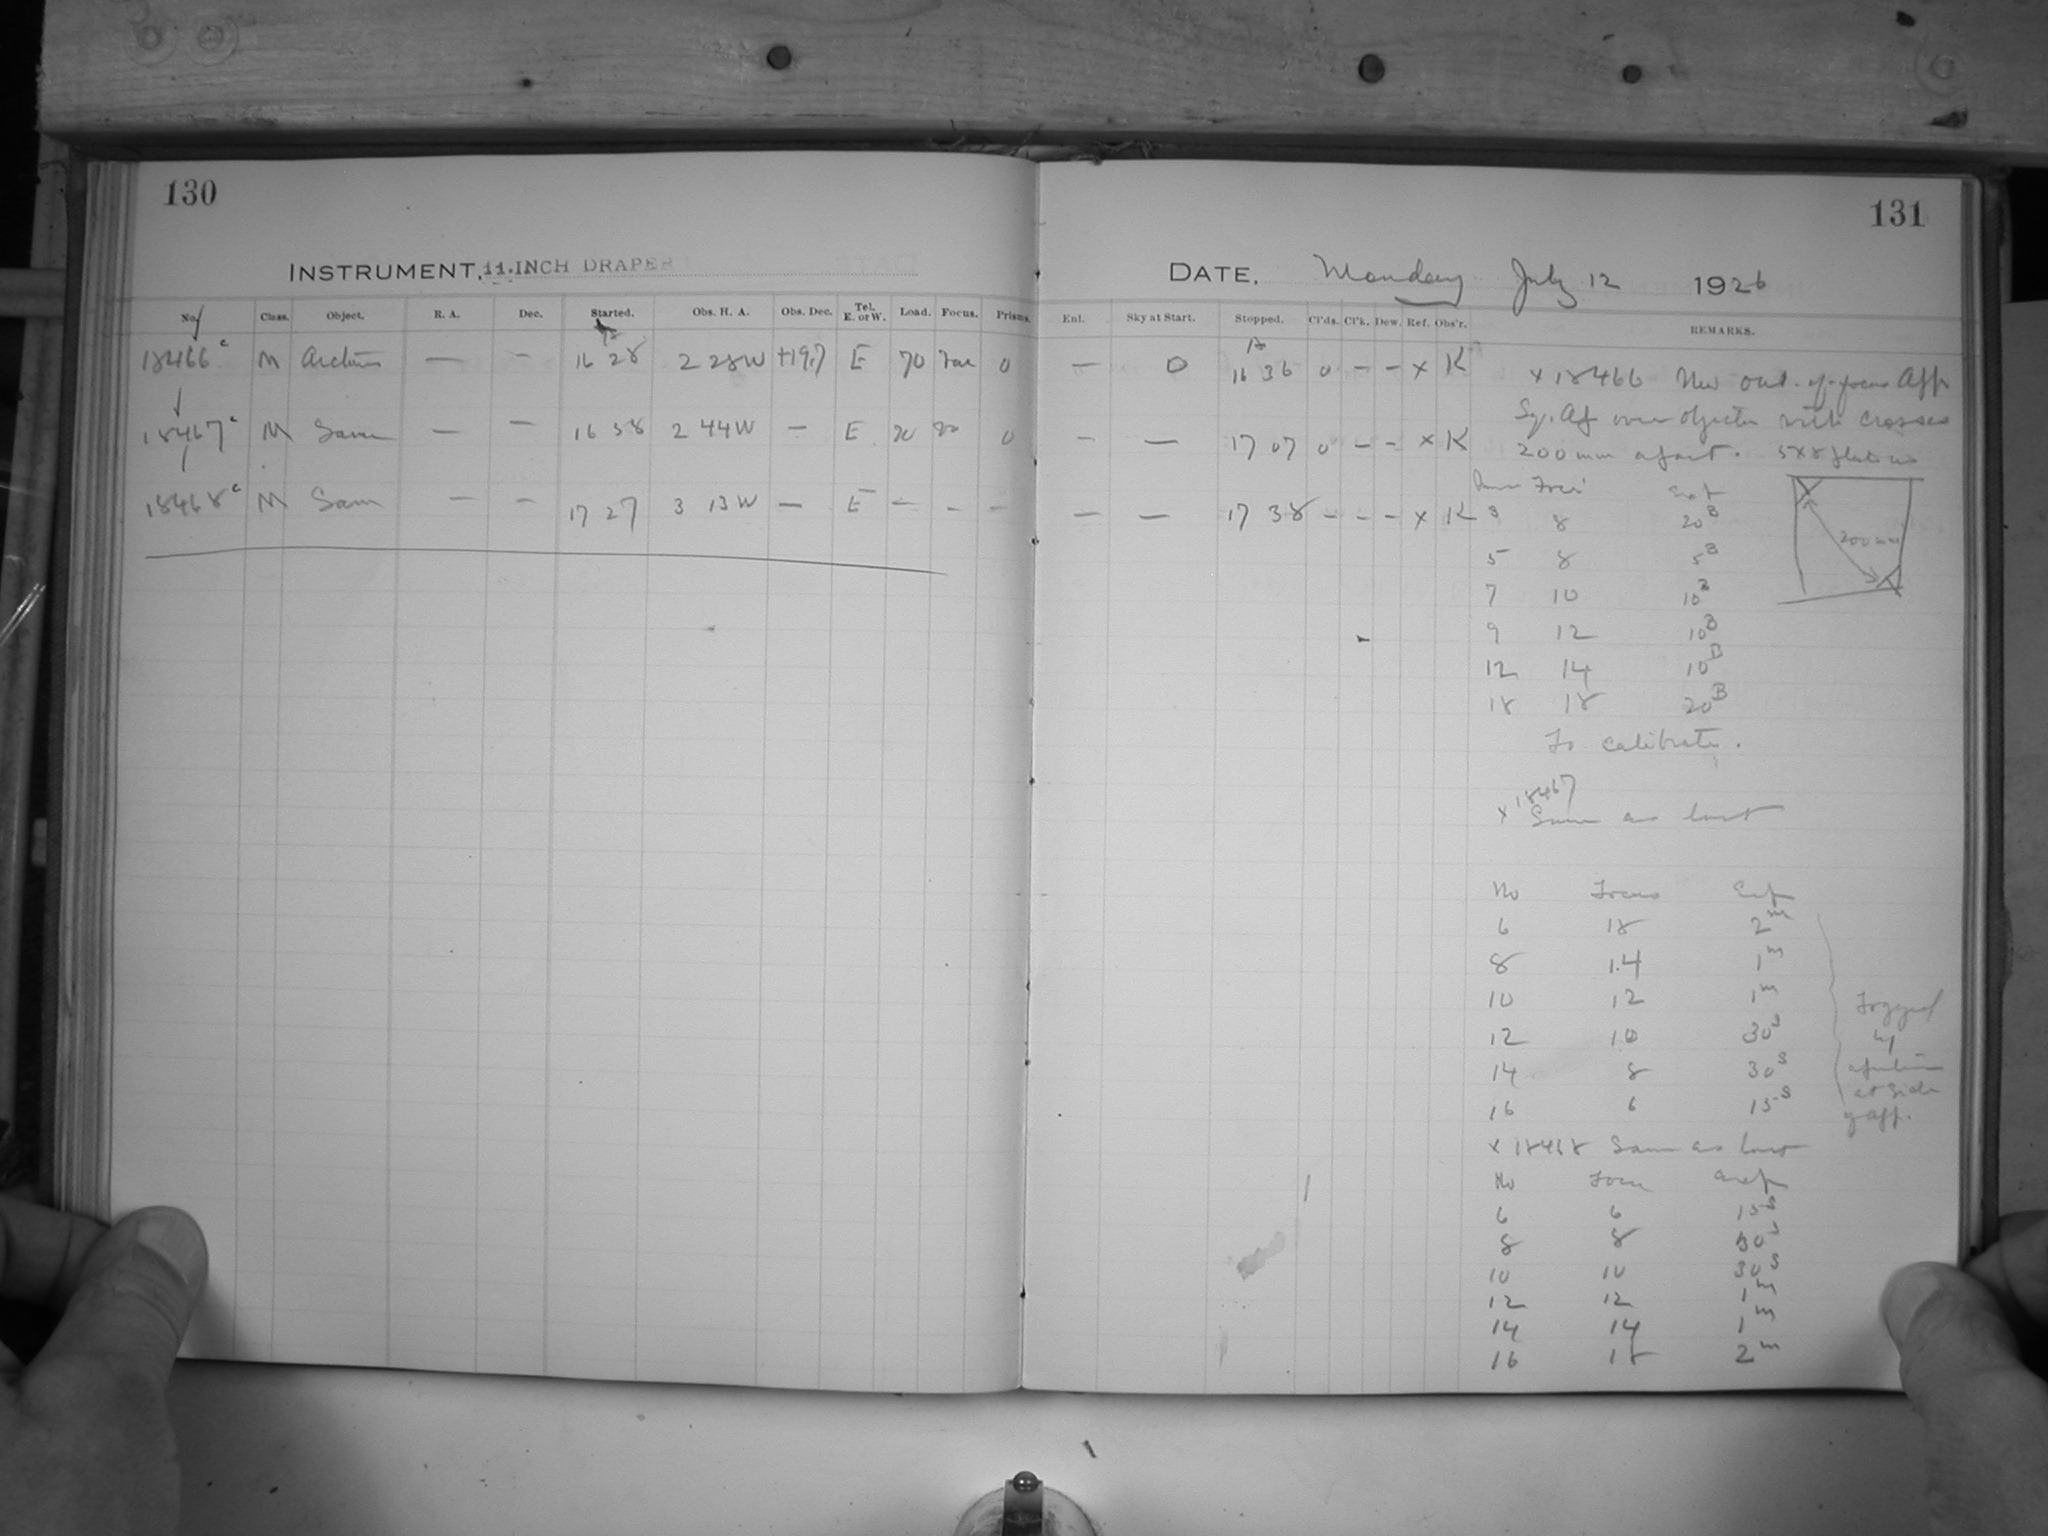 130
INSTRUMENT, 11-INCH DRAPER
No. Class. Object. R. A. Dec. Started. Obs. H. A. Obs. Dec. Tel. E. or W. Load. Focus. Prisms.
18466 c M — — 16 28 2 28 W +19.7 E 70 0
18467 c M Same — — 16 58 2 44 W — E 0
18468 c M Same — — 17 27 3 13 W — E — - —
131
DATE. Monday July 12 1926
Enl. Sky at Start. Stopped. Cl'ds. Cl'k. Dew. Ref. Obs'r. REMARKS.
— 0 16 36 0 — — x K
— — 17 07 0 — — x K
— — 17 38 — — — x K
x 18466 New out-of-focus App
over objective with crosses
200 mm apart. 5x8
200 mm
3 8 20 B
5 8 5 B
7 10 10 B
9 12 10 B
12 14 10 B
18 18 20 B
To calibrate.
x 18467
Same as last
No Focus Exp
6 18 2 m
8 14 1 m
10 12 1 m
12 10 30 s
14 8 30 s
16 6 15 s
Fogged
by
at side
of app.
x 18468 Same as last
No Focus Exp
6 6 15 s
8 8 30 s
10 10 30 s
12 12 1 m
14 14 1 m
16 18 2 m